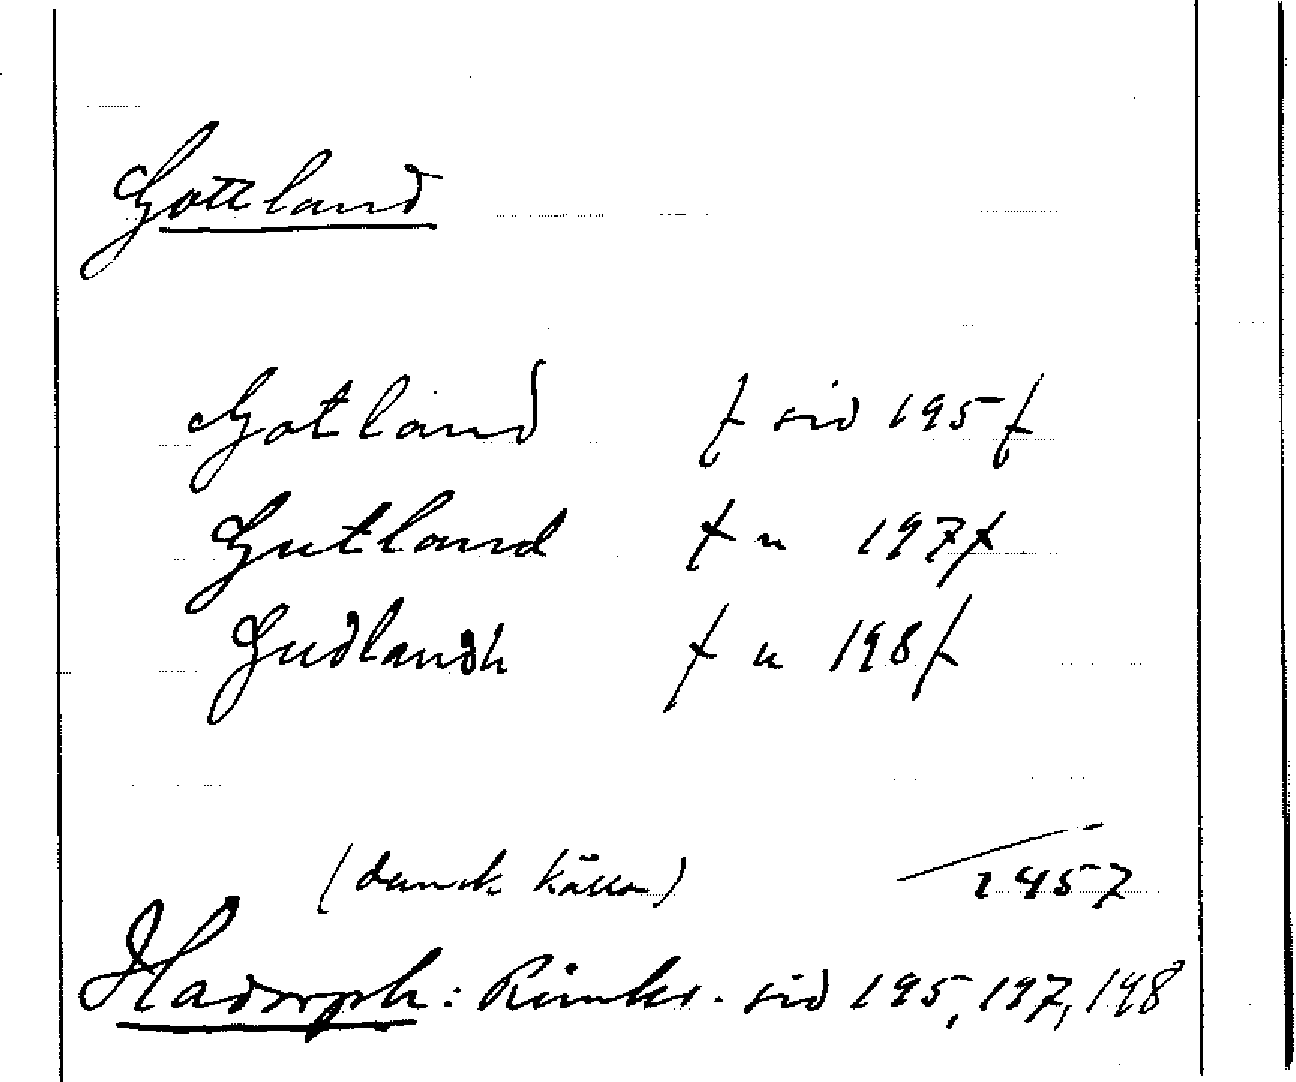 Gottland
Gotland ⌠ sid 195 ⌠
Gutland ⌠ " 197 ⌠
Gudlandh ⌠ " 198 ⌠
(dansk källa) 1457
Hadorph: Rimkr. sid 195, 197, 198